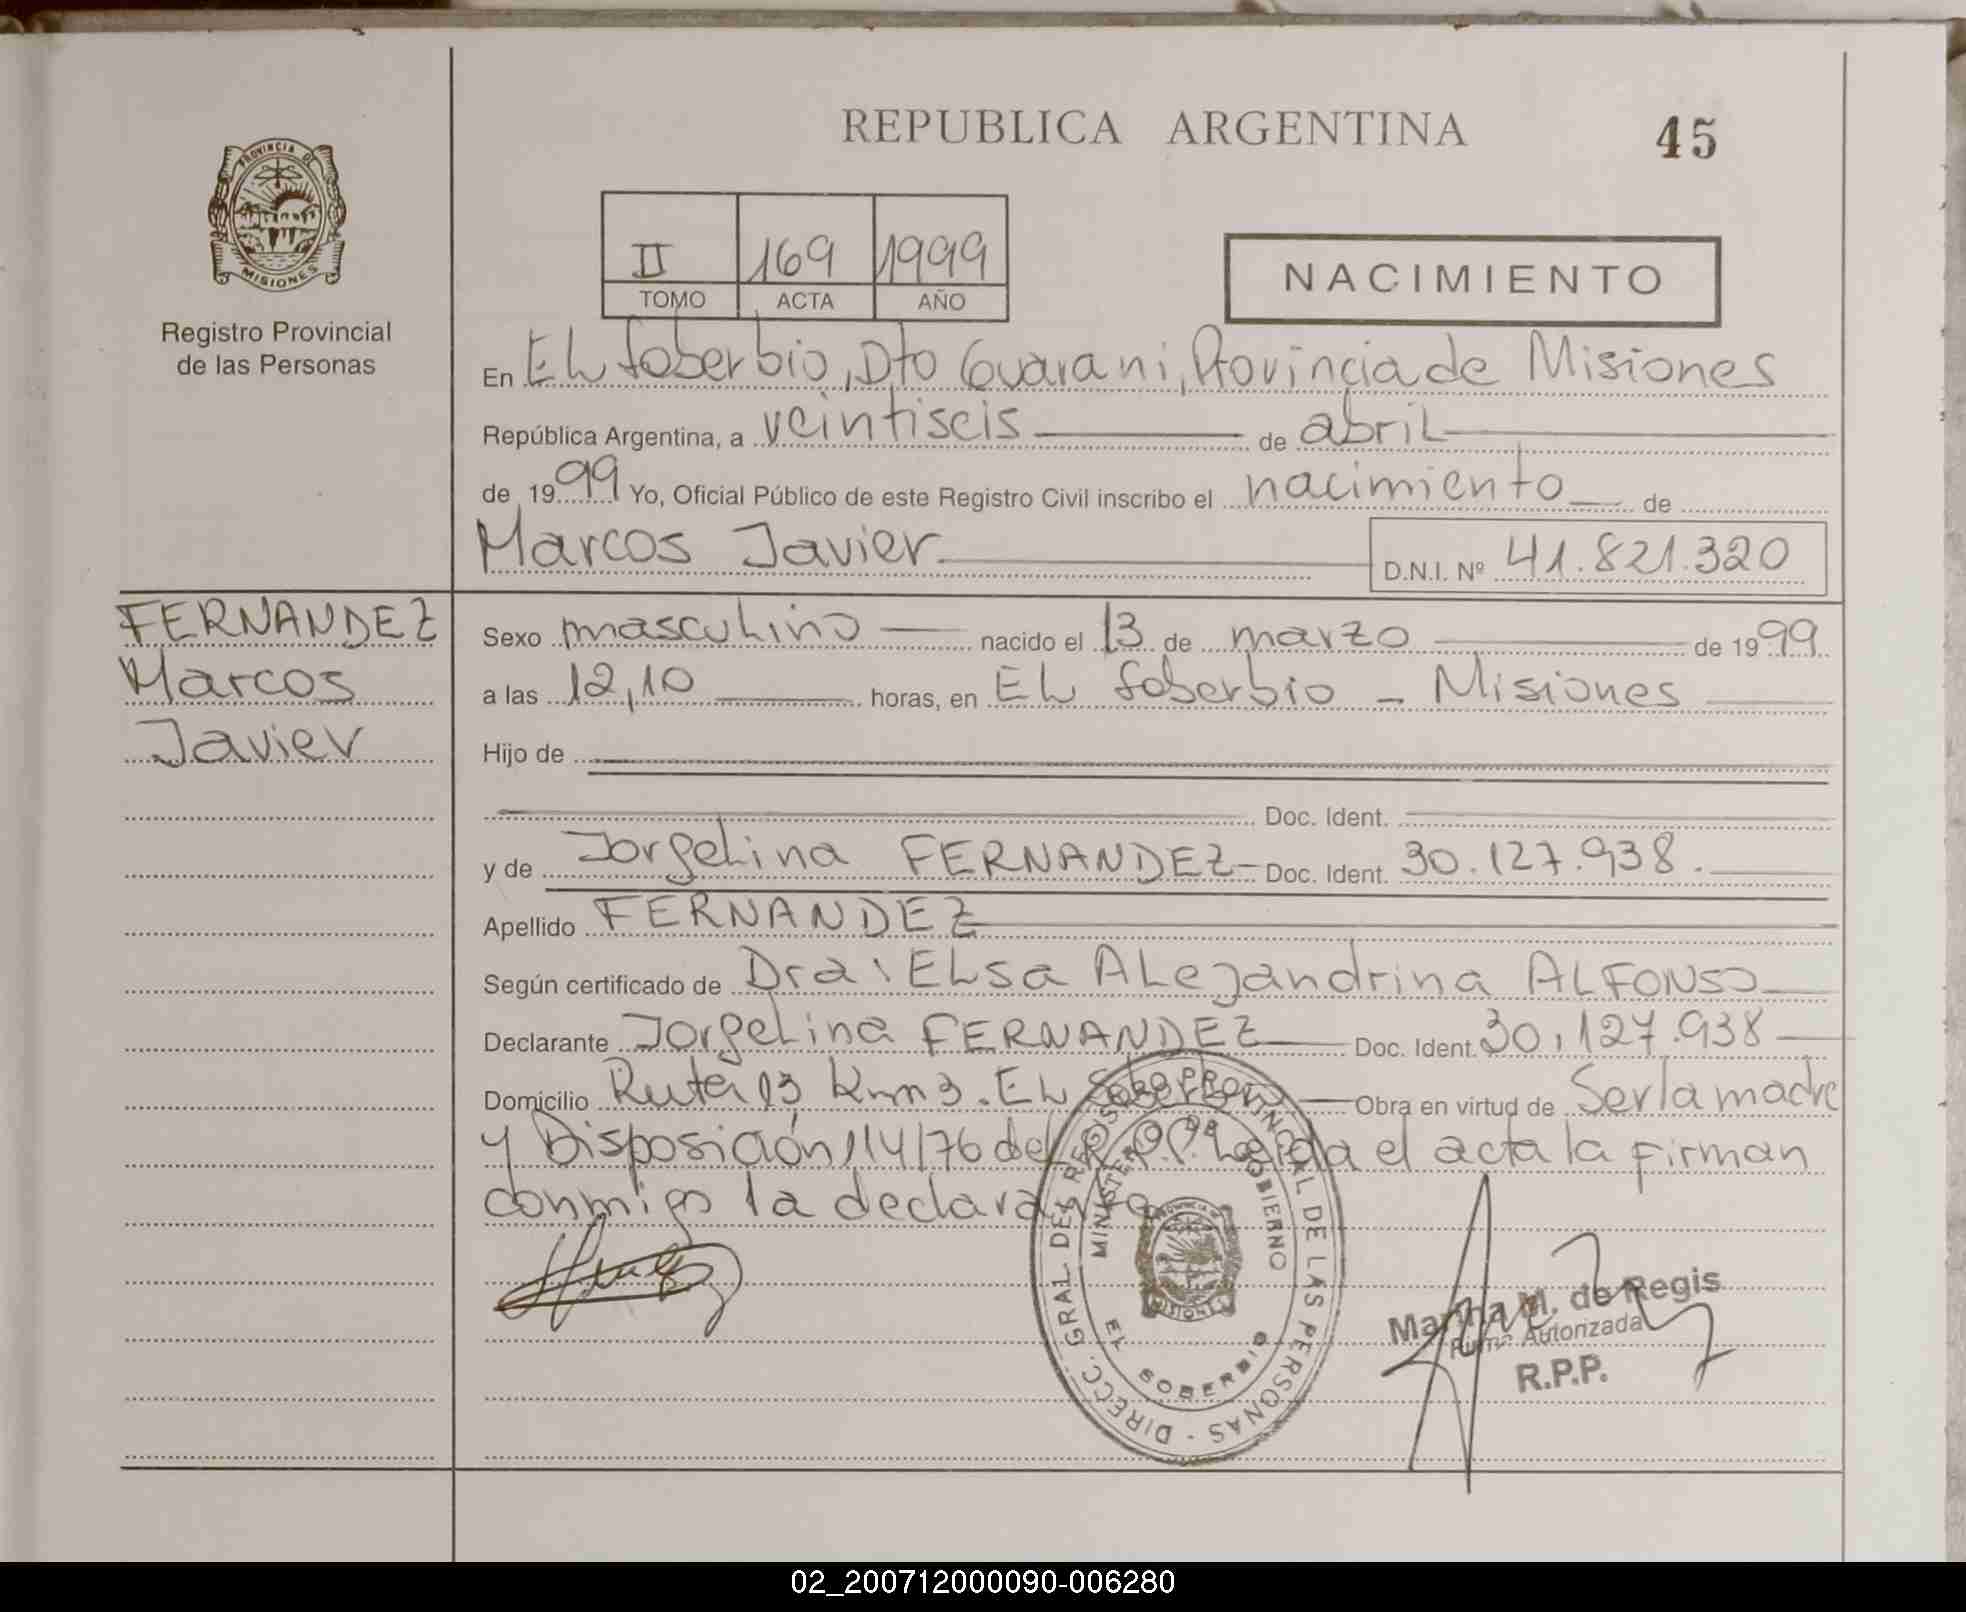 REPUBLICA ARGENTINA
45
PROVINCIA DE
MISIONES
Registro Provincial
de las Personas
II 169 1999
TOMO ACTA AÑO
NACIMIENTO
En EL Soberbio, Dto Guarani, Provincia de Misiones
República Argentina, a veintiseis de abril
de 1999 Yo, Oficial Público de este Registro Civil inscribo el nacimiento de
Marcos Javier D.N.I. Nº 41.821.320
FERNANDEZ
Marcos
Javier
Sexo masculino nacido el 13 de marzo de 1999
a las 12,10 horas, en EL Soberbio - Misiones
Hijo de
Doc. Ident.
y de Jorgelina FERNANDEZ Doc. Ident. 30.127.938.
Apellido FERNANDEZ
Según certificado de Dra: ELsa ALejandrina ALFONSO
Declarante Jorgelina FERNANDEZ Doc. Ident. 30.127.938
Domicilio Ruta 13 Km 3. EL Soberbio Obra en virtud de Ser la madre
y Disposición 114/76 del R.P.P. Leida el acta la firman
conmigo la declarante
DIRECC. GRAL. DEL REGISTRO PROVINCIAL DE LAS PERSONAS
MINISTERIO DE GOBIERNO
MISIONES
EL SOBERBIO
Martha M. de Regis
Firma Autorizada
R.P.P.
02_200712000090-006280